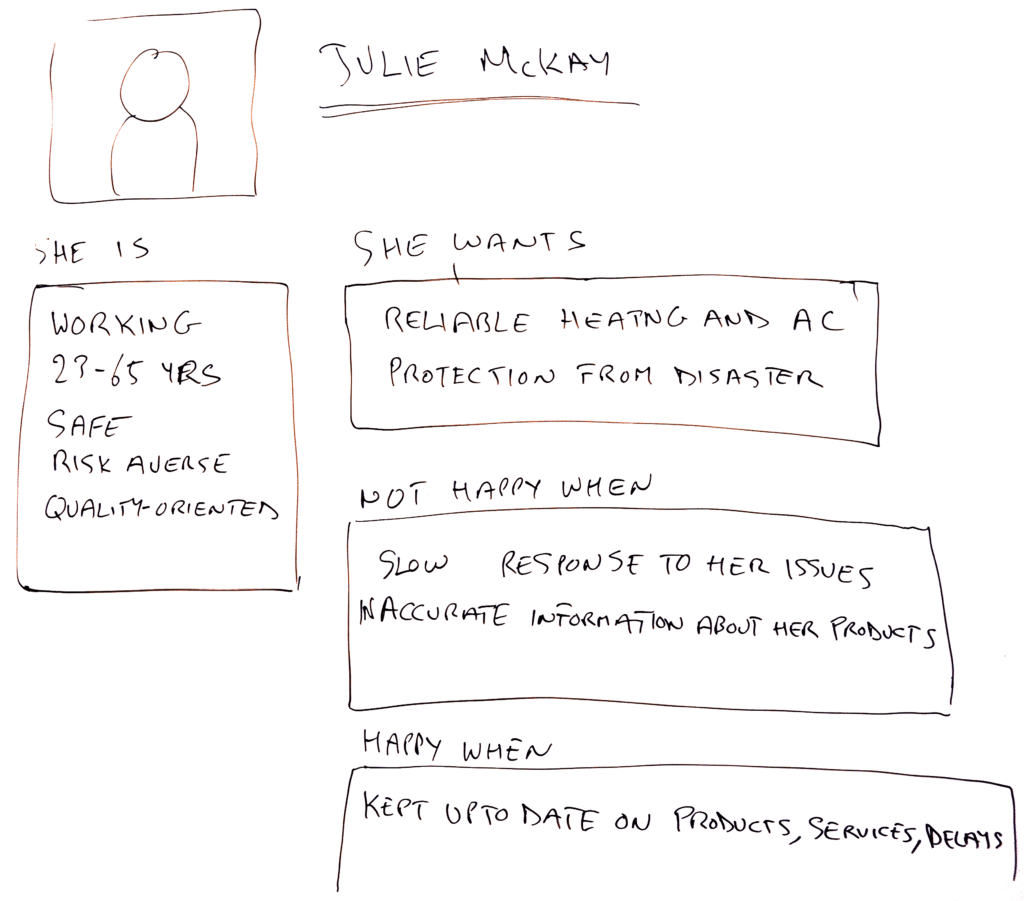 JULIE McKAY
SHE IS
WORKING
23-65 YRS
SAFE
RISK AVERSE
QUALITY-ORIENTED
SHE WANTS
RELIABLE HEATNG AND AC
PROTECTION FROM DISASTER
NOT HAPPY WHEN
SLOW RESPONSE TO HER ISSUES
INACCURATE INFORMATION ABOUT HER PRODUCTS
HAPPY WHEN
KEPT UPTO DATE ON PRODUCTS, SERVICES, DELAYS